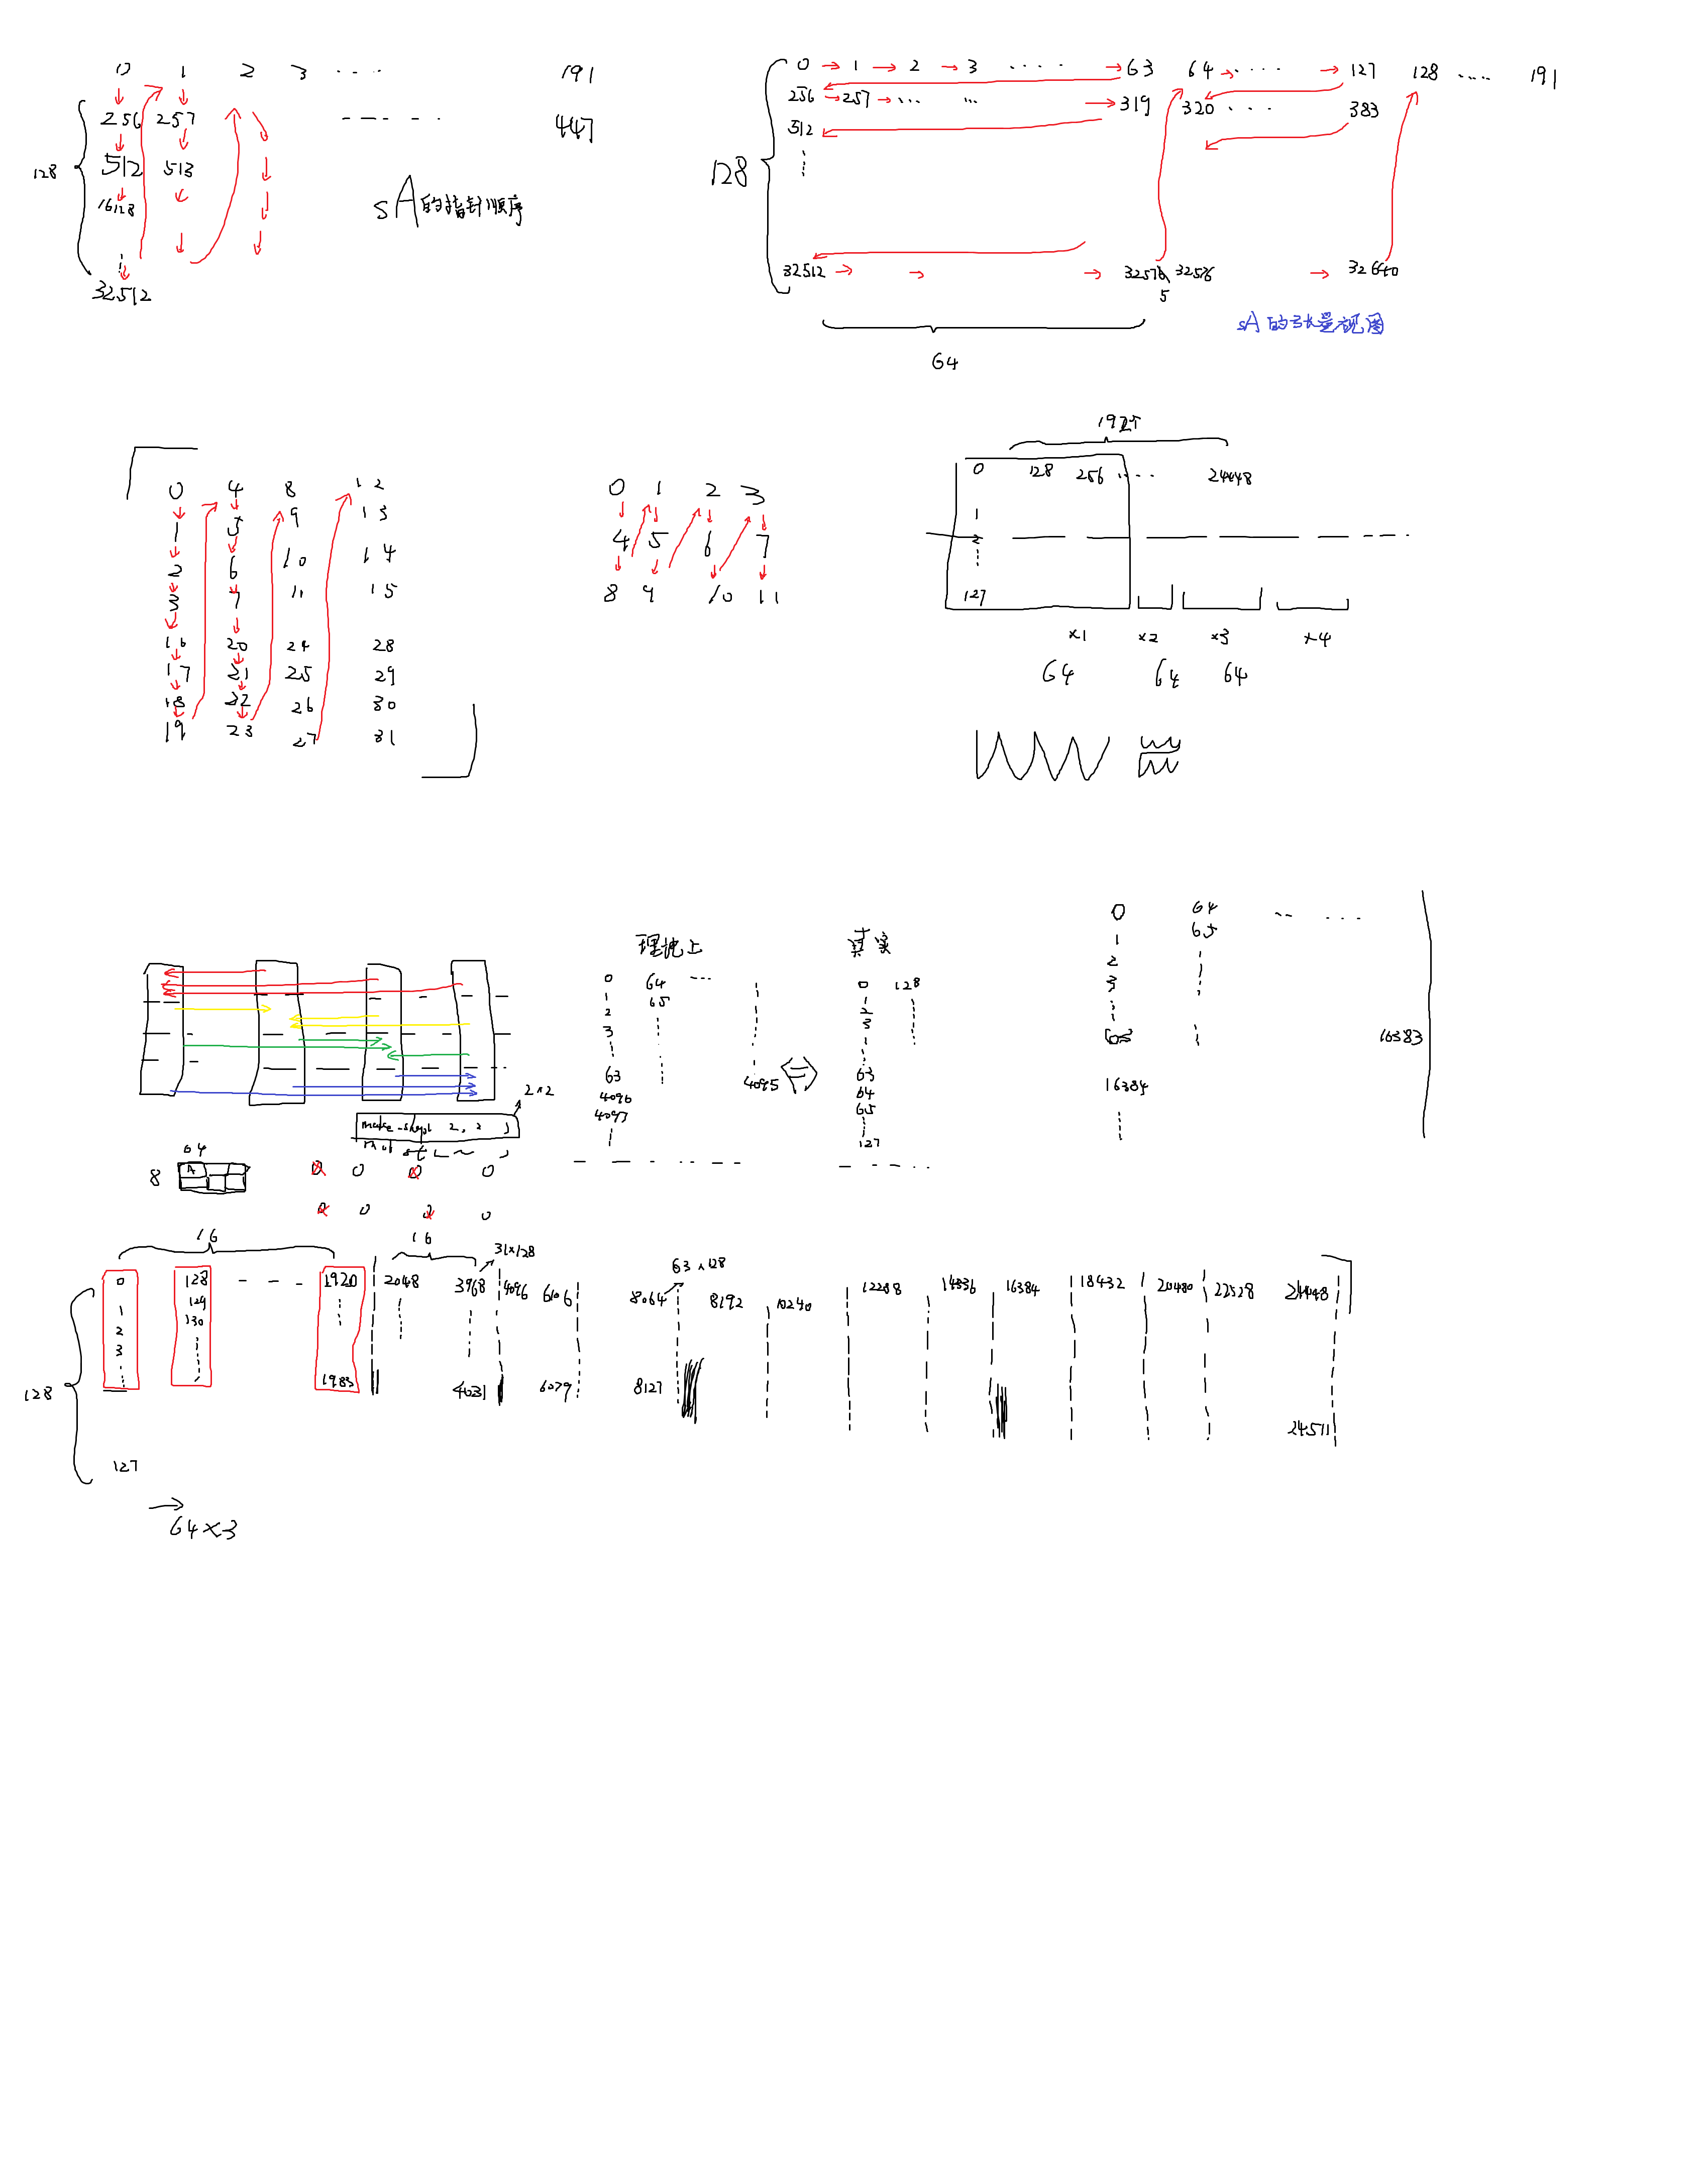 0 1 2 3 ···· 191
256 257 ---- 447
128
512 513
16128
32512
sA的指针顺序
0 → 1 → 2 → 3 ····· → 63 64 → ···· → 127 128 ···· 191
256 → 257 → ··· ··· → 319 320 ··· 383
512
128
32512 → → → 32578 → 32640
5
64
sA的张量视图
0 4 8 12
1 5 9 13
2 6 10 14
3 7 11 15
16 20 24 28
17 21 25 29
18 22 26 30
19 23 27 31
0 1 2 3
4 5 6 7
8 9 10 11
0 128 256 ···· 24448
1
2
127
×1 ×2 ×3 ×4
64 64 64
2×2
make-shape 2, 2 )
64
8 A
0 0 0 0
0 0 0 0
理论上
0 64 ---
1 65
2
3
63 4095
4096
4097
真实
0 128
1
2
3
63
64
65
127
0 64 -- ---
1 65
2
3
16383
16384
16 16 31×128
63×128
0 128 - - - 1920 2048 3968 4096 8064 8192 10240 12288 14336 16384 18432 20480 22528 24448
1 129
2 130
3
1983 4031 6079 8127
24511
128
127
→
64×3